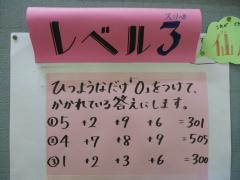 スリー
レベル3
ひつようなだけ「0」をつけて、
かかれている答えにします。
①5 +2 +9 +6 =301
②4 +7 +8 +9 =505
③1 +2 +3 +6 =300